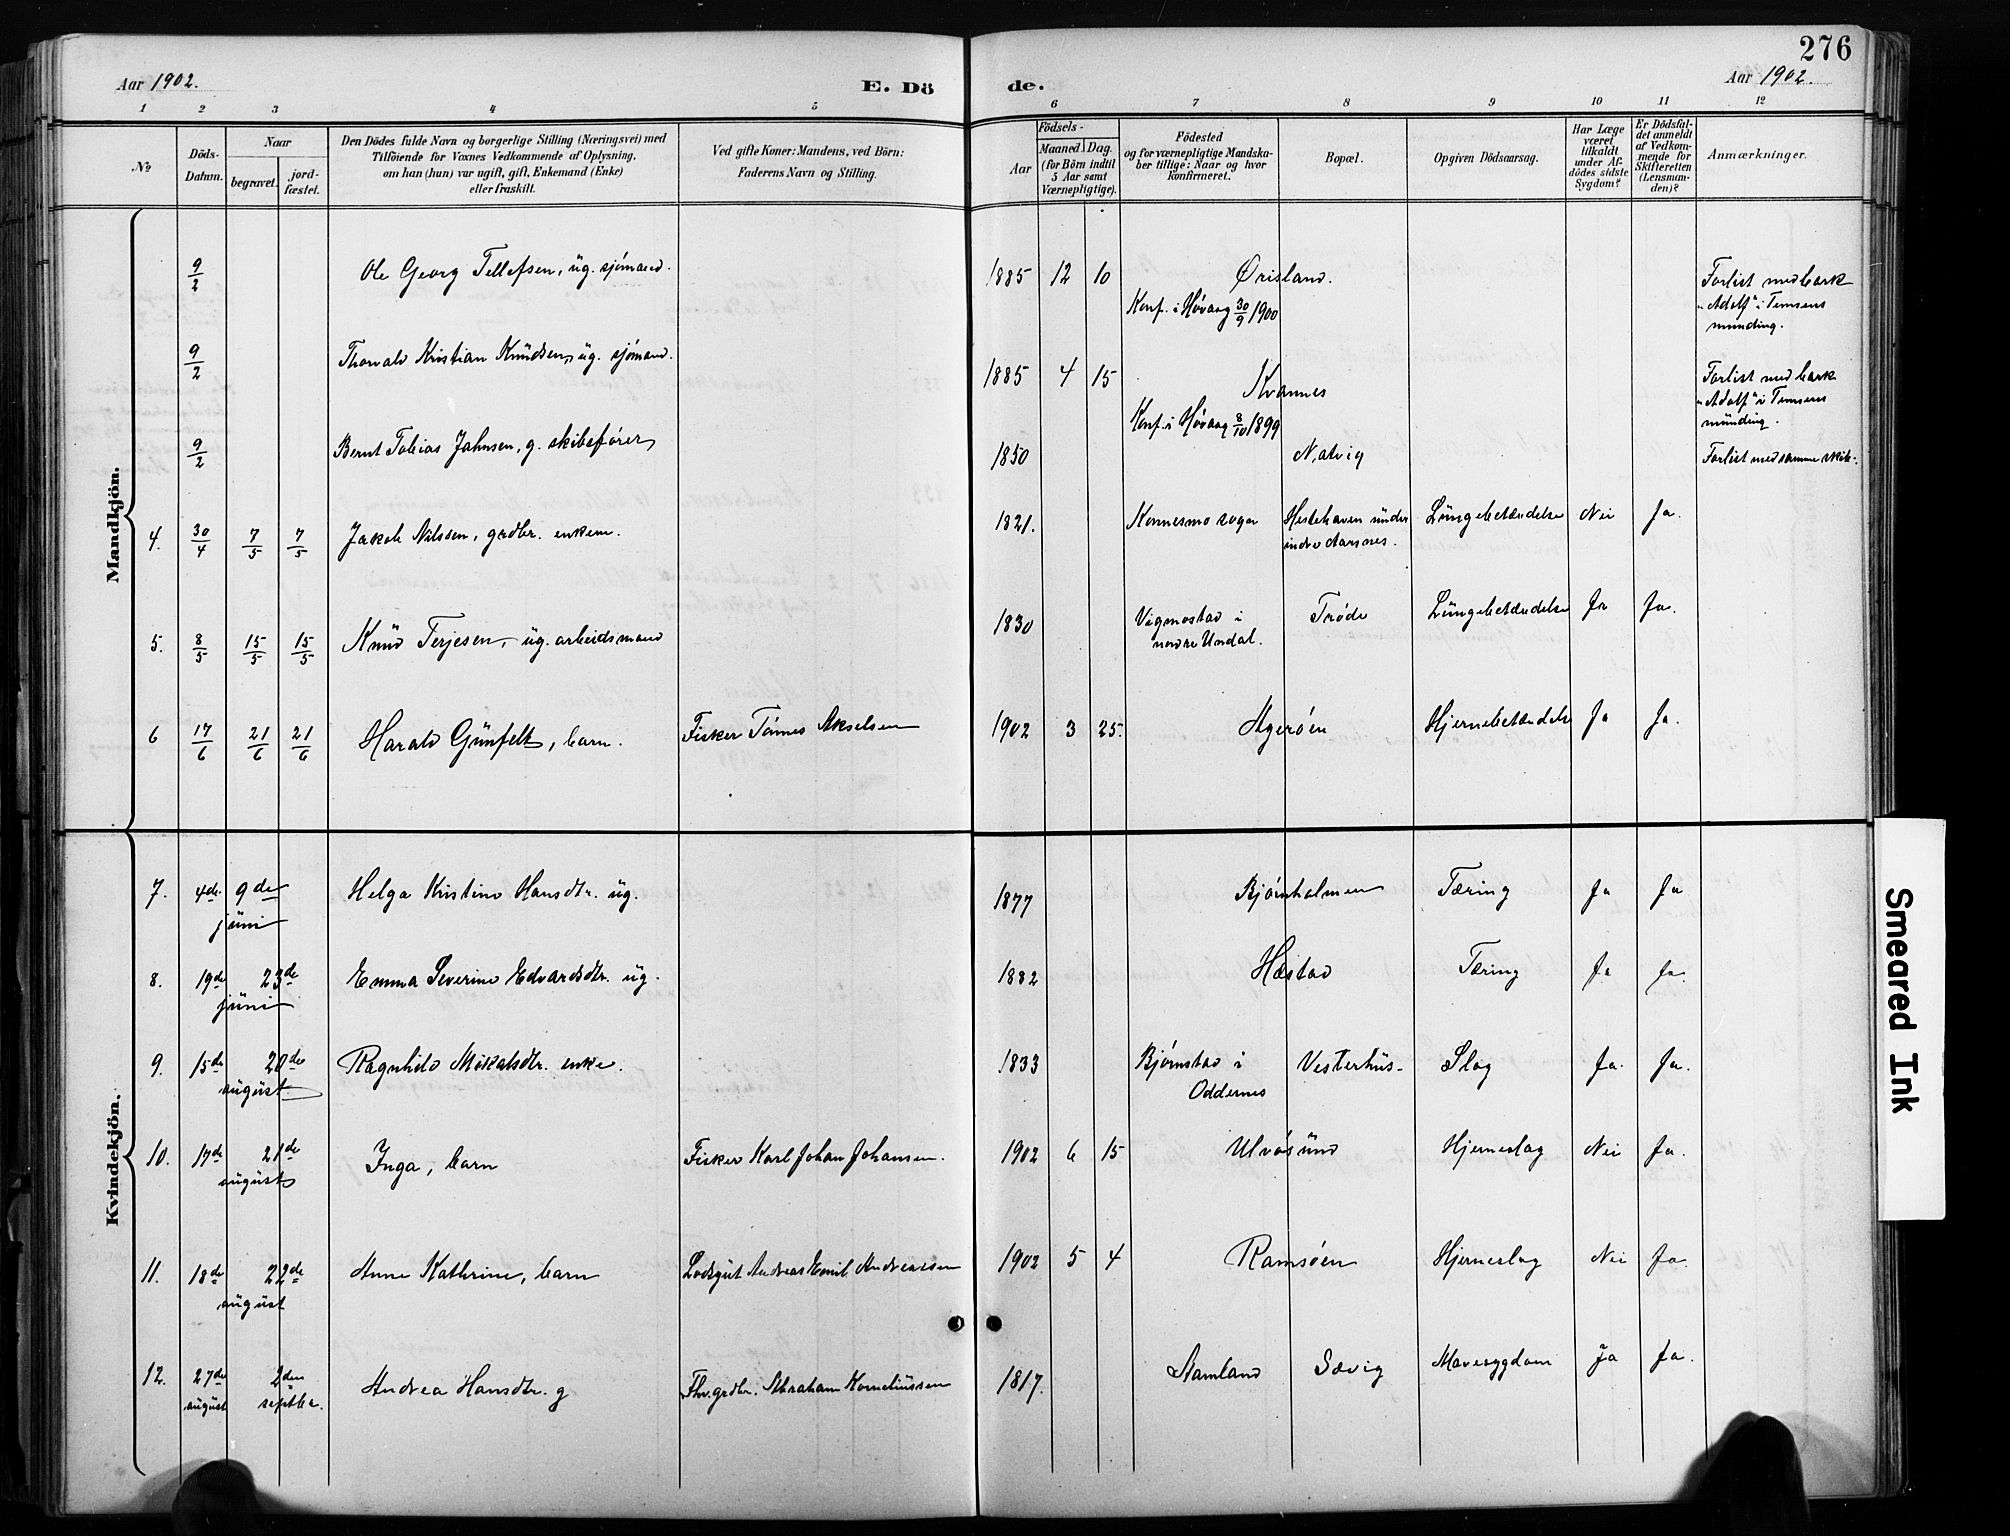 276
Aar 1902.
E. Dö
de.
Aar 1902.
1 2 3 4 5 6 7 8 9 10 11 12
No
Döds-
Datum.
Naar
begravet.
jord-
fæstet.
Den Dödes fulde Navn og borgerlige Stilling (Næringsvei) med
Tilföiende for Voxnes Vedkommende af Oplysning,
om han (hun) var ugift, gift, Enkemand (Enke)
eller fraskilt.
Ved gifte Koner: Mandens, ved Börn:
Faderens Navn og Stilling.
Födsels-
Aar
Maaned Dag.
(for Börn indtil
5 Aar samt
Værnepligtige).
Födested
og for værnepligtige Mandska-
ber tillige: Naar og hvor
Konfirmeret.
Bopæl.
Opgiven Dödsaarsag.
Har Læge
været
tilkaldt
under Af-
dödes sidste
Sygdom?
Er Dödsfal-
det anmeldt
af Vedkom-
mende for
Skifteretten
(Lensman-
den)?
Anmærkninger.
Mandkjön.
9/2 Ole Georg Tellefsen, ug. sjømand. 1885 12 10 Ørisland.
Konf. i Høvaag 30/9 1900
Forlist med bark
"Adolf" i Temsens
munding.
9/2 Thorvald Kristian Knudsen, ug. sjømand. 1885 4 15 Kvannes
Konf. i Høvaag 8/10 1899
Forlist med bark
"Adolf" i Temsens
munding.
9/2 Bernt Tobias Jahnsen, g. skibsfører 1850 Natvig Forlist med samme skib.
4. 30/4 7/5 7/5 Jakob Nilssen, grdbr. enkem. 1821. Konnesmo sogn Hestehaven under
indre Aarsnes. Lungebetændelse Nei Ja.
5. 8/5 15/5 15/5 Knud Terjesen, ug. arbeidsmand 1830 Vigmostad i
nordre Undal. Trøde Lungebetændelse Ja Ja.
6 17/6 21/6 21/6 Harald Gunfelt, barn. Fisker Tømes Akselsen 1902 3 25. Agerøen Hjernebetændelse Ja Ja.
Kvindekjön.
7. 4de 9de
juni Helga Kristine Hansdtr. ug. 1877 Bjørnholmen Tæring Ja Ja
8. 19de 23de
juni Emma Severine Edvardsdtr. ug. 1882 Hæstad Tæring Ja Ja.
9. 15de 20de
august. Ragnhild Mikalsdtr. enke. 1833 Bjørnstad i
Oddernes Vesterhus- Slag Ja. Ja.
10. 17de 21de
august Inga, barn Fisker Karl Johan Johansen. 1902 6 15 Ulvøsund Hjerneslag Nei Ja.
11. 18de 22de
august Anne Kathrine, barn Lodsgut Andreas Emil Andreassen 1902 5 4 Ramsøen Hjerneslag Nei Ja.
12. 27de 2den
august septbr. Andrea Hansdtr. g Fhv. grdbr. Abraham Korneliussen 1817. Aamland Sævig Mavesygdom Ja Ja.
Smeared Ink